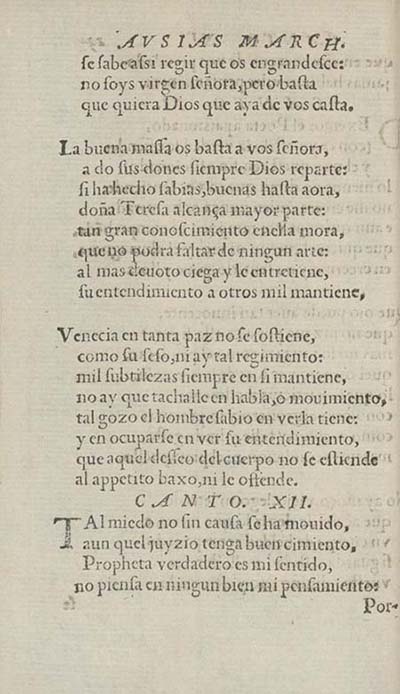 AVSIAS MARCH.
se sabe assi regir que os engrandesce:
no soys virgen señora, pero basta
que quiera Dios que aya de vos casta.
La buena massa os basta a vos señora,
a do sus dones siempre Dios reparte:
si ha hecho sabias, buenas hasta aora,
doña Teresa alcança mayor parte:
tan gran conoscimiento enella mora,
que no podra faltar de ningun arte:
al mas deuoto ciega y le entretiene,
su entendimiento a otros mil mantiene,
Venecia en tanta paz no se sostiene,
como su seso, ni ay tal regimiento:
mil subtilezas siempre en si mantiene,
no ay que tachalle en habla, o mouimiento,
tal gozo el hombre sabio en verla tiene:
y en ocuparse en ver su entendimiento,
que aquel desseo del cuerpo no se estiende
al appetito baxo, ni le ofende.
CANTO. XII.
TAl miedo no sin causa se ha mouido,
aun quel juyzio tenga buen cimiento,
Propheta verdadero es mi sentido,
no piensa en ningun bien mi pensamiento:
Por-